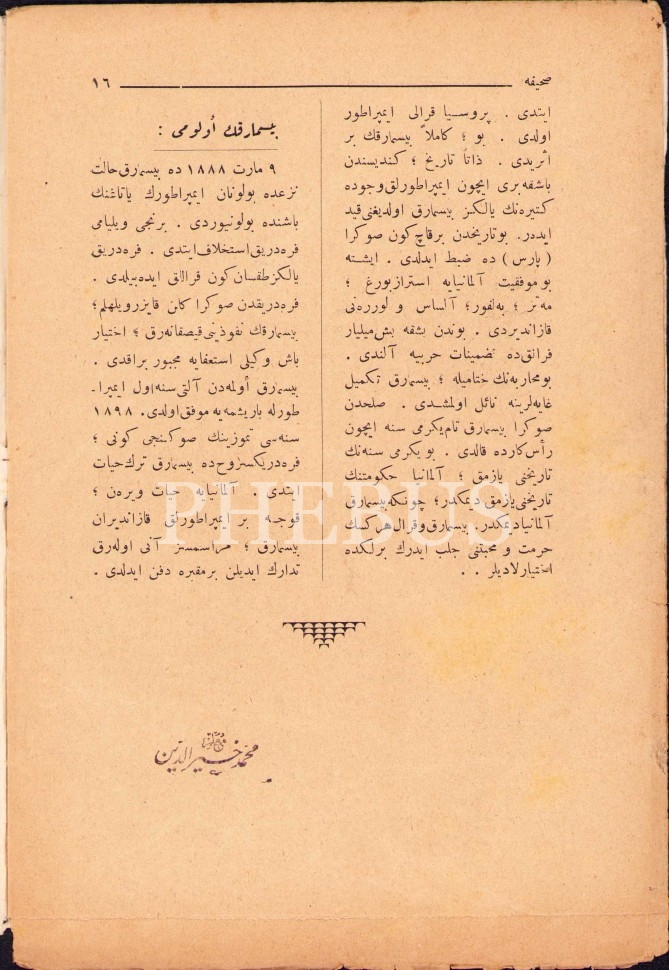 صحيفه ١٦
ايتدى . پروسيا قرالى ايمپراطور
اولدى . بو ؛ كاملاً بيسمارقك بر
اثريدى . ذاتاً تاريخ ؛ كنديسندن
باشقه برى ايچون ايمپراطورلق وجوده
كتيره نك يالكز بيسمارق اولديغنى قيد
ايدەر. بو تاريخدن برقاچ كون صوكرا
( پارس ) ده ضبط ايدلدى . ايشته
بو موفقيت آلمانيايه استرازبورغ ؛
مه تز ؛ به لفور؛ آلساس و لوررەنى
قازانديردى . بوندن بشقه بش ميليار
فرانق ده تضمينات حربيه آلندى .
بو محاربه نك ختاميله ؛ بيسمارق تكميل
غايه لرينه نائل اولمشدى . صلحدن
صوكرا بيسمارق تام يكرمى سنه ايچون
رأس كارده قالدى . بو يكرمى سنه نك
تاريخنى يازمق ؛ آلمانيا حكومتنك
تاريخنى يازمق ديمكدر؛ چونكه بيسمارق
آلمانيا ديمكدر. بيسمارق و قرال هر كسك
حرمت و محبتنى جلب ايدرك برلكده
اختيارلاديلر . .
بيسمارقك أولومى :
٩ مارت ١٨٨٨ ده بيسمارق حالت
نزعده بولونان ايمپراطورك ياتاغنك
باشنده بولونيوردى . برنجى ويليامى
فره دريق استخلاف ايتدى . فره دريق
يالكز طقسان كون قراللق ايده بيلدى .
فره دريقدن صوكرا كلن قايزر ويلهلم ؛
بيسمارقك نفوذينى قيصقانه رق ؛ اختيار
باش وكيلى استعفايه مجبور براقدى .
بيسمارق أولمه دن آلتى سنه اول ايمپرا-
طورله باريشمه يه موفق اولدى. ١٨٩٨
سنه سى تموزينك صوكنجى كونى ؛
فره دريكسروح ده بيسمارق ترك حيات
ايتدى . آلمانيايه حيات ويره ن ؛
قوجه بر ايمپراطورلق قازانديران
بيسمارق ؛ مراسمسز آنى اوله رق
تدارك ايديلن بر مقبره دفن ايدلدى .
محمد خيرالدين
PHEBUS